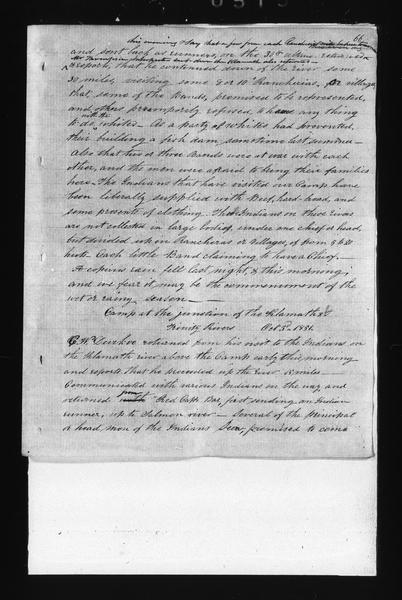 this morning & say that a few from each Rancheria will be here tomorrow
and sent back as runners, on the 30th ultimo
Mr Thompson Interpreter sent down the Klamath also returned
& reports, that he continued down the River some
30 miles, visiting some 8 or 10 Rancherias, or villages
that some of the Bands, promised to be represented,
and others peremptorily refused to have any thing
to do with the whites. As a party of whites had prevented
their building a fish dam, sometime last summer
Also that two or three Bands were at war with each
other, and the men were afraid to bring their families
here. The Indians that have visited our Camp have
been liberally supplied with Beef, hard bread, and
some presents of clothing. The Indians on these Rivers
are not collected in large bodies, under one chief or head,
but divided up in Rancheras or villages, of from 5 to 20
huts Each little Band claiming to have a Chief.
A copious rain fell last night & this morning,
and we fear it may be the commencement of the
wet or rainy season
Camp at the junction of the Klamath &
Trinity Rivers Oct 3d 1851.
returned from his visit to the Indians on
the Klamath river above the Camp early this morning
and reports that he proceeded up the River 15 miles
Communicated with various Indians on the way, and
returned from Red Cap's Bar, first sending an Indian
runner, up to Salmon river — Several of the Principal
or head, men of the Indians seen, promised to come